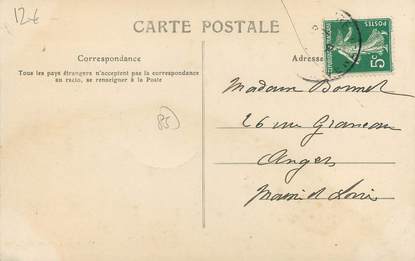 12€
CARTE POSTALE
Correspondance
Tous les pays étrangers n'acceptent pas la correspondance
au recto, se renseigner à la Poste
Adresse
POSTES
5c
85
Madame Bonnet
26 rue
Angers
Maine et Loire